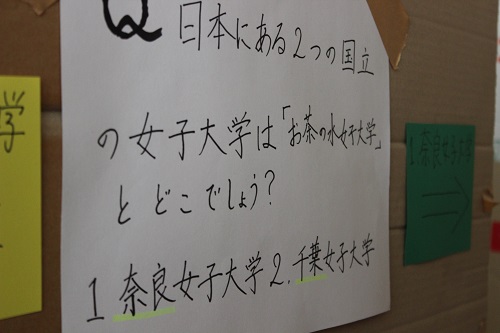 Q 日本にある2つの国立
の女子大学は「お茶の水女子大学」
とどこでしょう?
1 奈良女子大学 2. 千葉女子大学
学
1.奈良女子大学